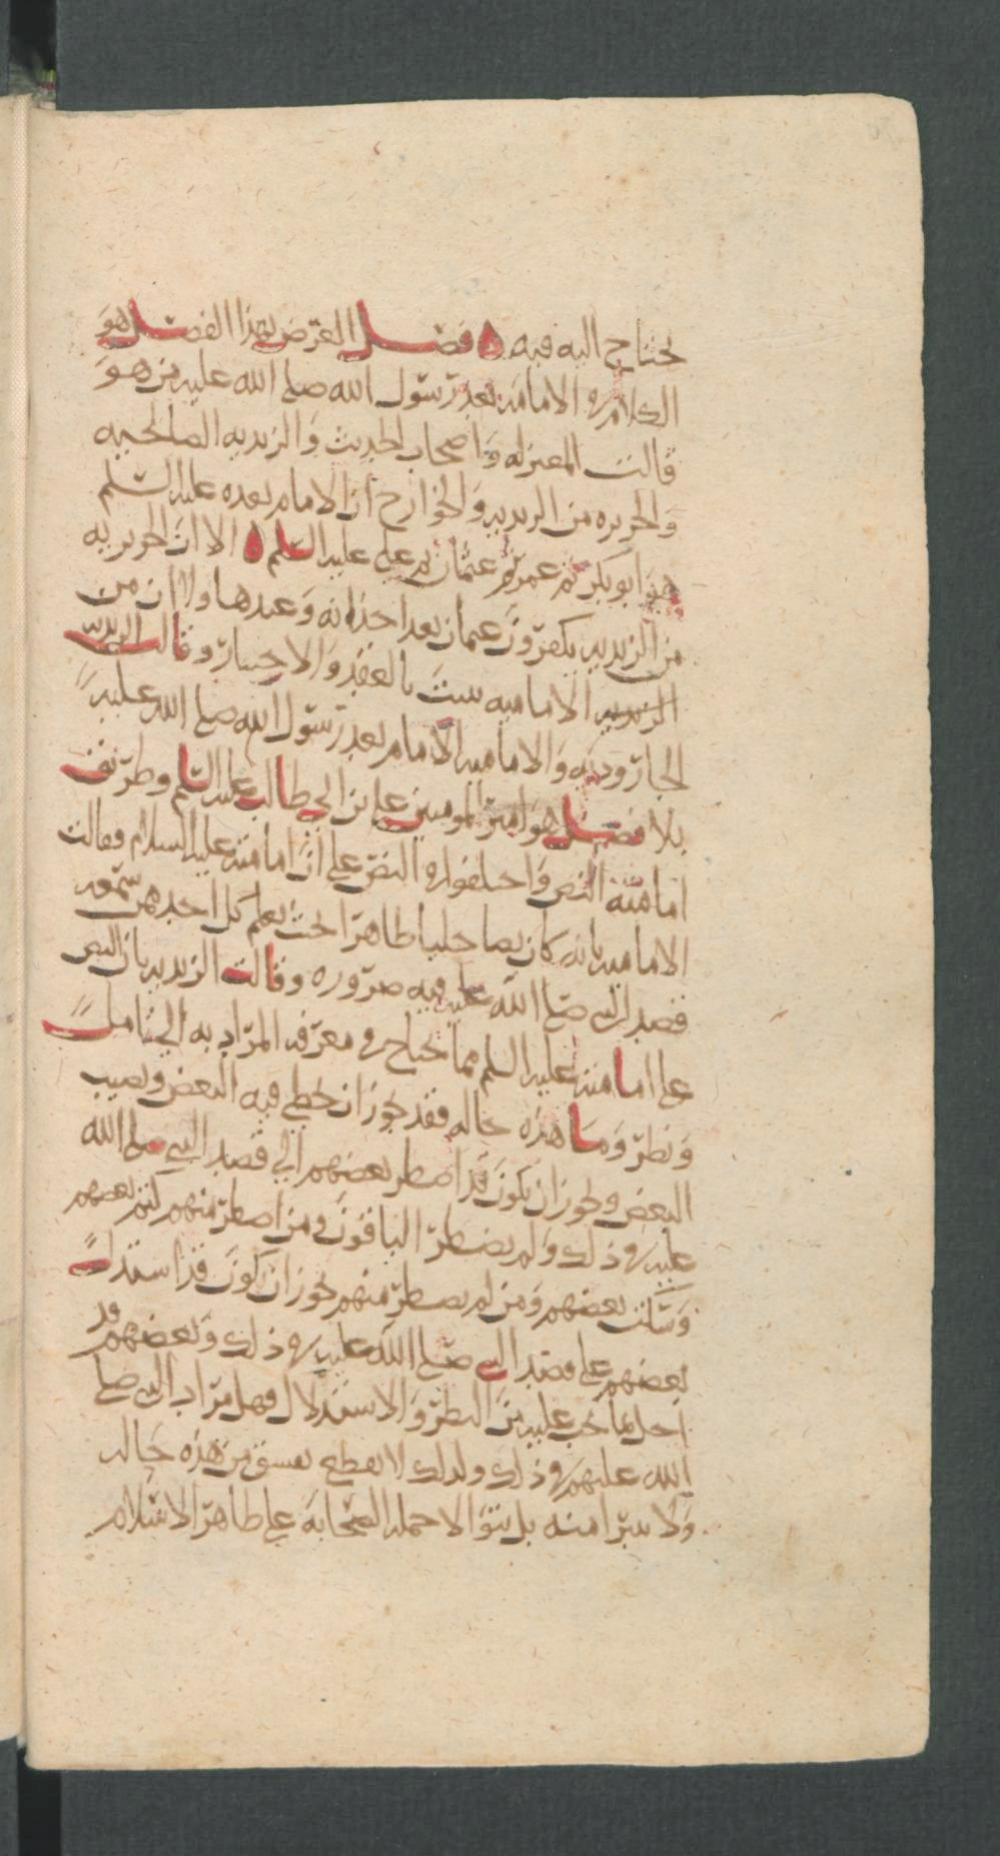 يحتاج اليه فيه ه فصل الغرض بهذا الفصل هو
الكلام في الامامة بعد رسول الله صلى الله عليه من هو
قالت المعتزله واصحاب الحديث والزيديه الصالحيه
والجريره من الزيديه والخوارج ان الامام بعده عليه السلم
هو ابو بكر ثم عمر ثم عثمان ثم علي عليه السلم ه الا ان الجريريه
من الزيديه يكفرون عثمان بعد احداثه وعندها ولا ان من
الزيديه الامامية تثبت بالعقد والاختيار وقالت الزيديه
الجاروديه والامامية الامام بعد رسول الله صلى الله عليه
بلا فصل هو امير المومنين علي بن ابي طالب عليه السلم وطريق
امامته النص واختلفوا في النص على ان امامته عليه السلام فقالت
الاماميه بانه كان نصا جليا ظاهرا بحيث يعلم كل احد من سمعه
قصد النبي صلى الله عليه فيه ضروره وقالت الزيديه بان النص
على امامته عليه السلم مما يحتاج في معرفة المراد به الى تامل
ونظر وما هذه حاله فقد يجوز ان يخطي فيه البعض ويصيب
البعض ويجوز ان يكون قد اضطر بعضهم الى قصد النبي صلى الله
عليه في ذلك ولم يضطر الباقون ومن اضطر منهم كتم بعضهم
وسكت بعضهم ومن لم يضطر منهم يجوز ان يكون قد استدل
بعضهم على قصد النبي صلى الله عليه في ذلك وبعضهم قد
اخل بما يجب عليه من النظر والاستدلال فجهل مراد النبي صلى
الله عليه في ذلك ولذلك لا نقطع بفسق من هذه حاله
ولا نبرا منه بل نتوالا جملة الصحابة على ظاهر الاسلام